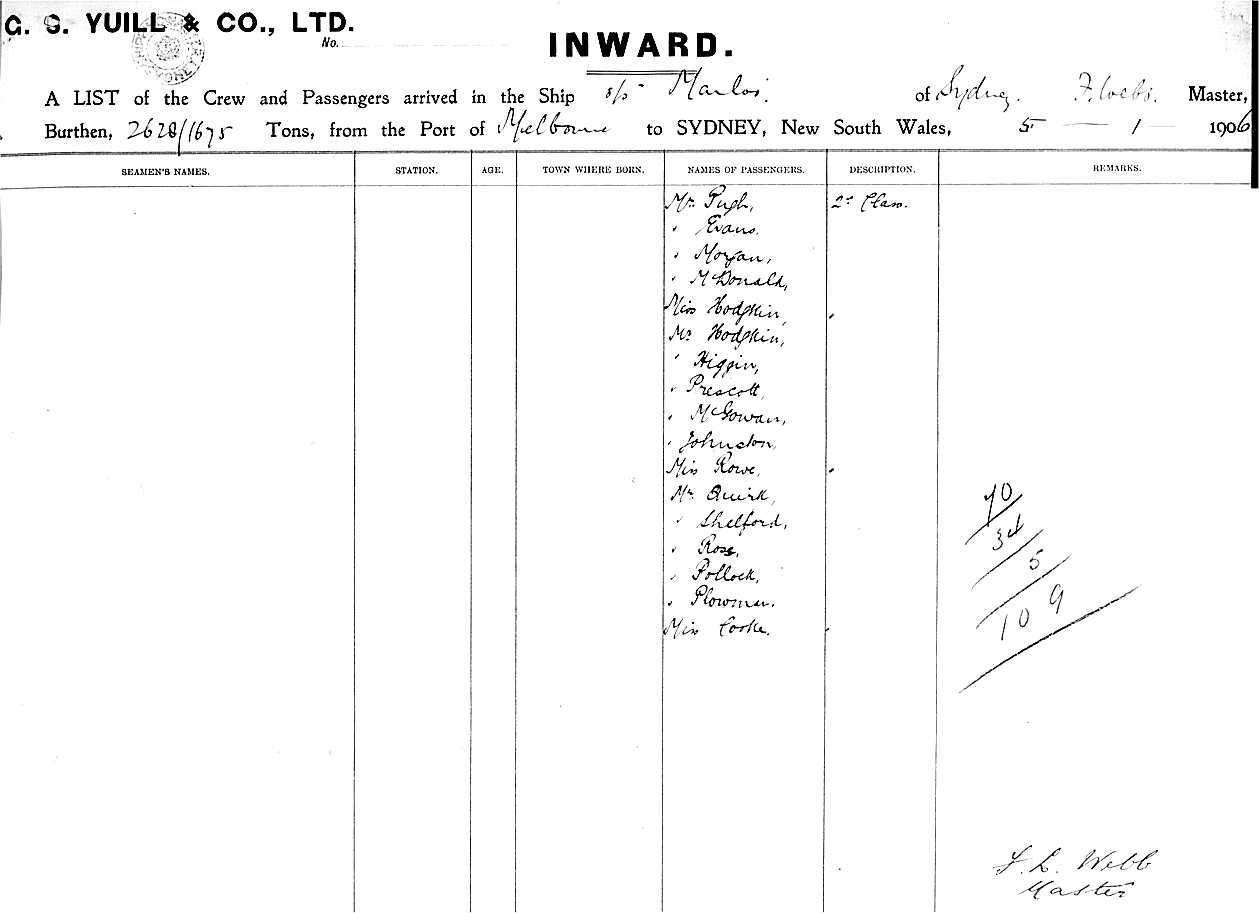 G. S. YUILL & CO., LTD.
No.
INWARD.
A LIST of the Crew and Passengers arrived in the Ship s/s of Sydney. F. Webb. Master,
Burthen, 2628/1675 Tons, from the Port of Melbourne to SYDNEY, New South Wales, 5 — 1 — 1906
SEAMEN'S NAMES. STATION. AGE. TOWN WHERE BORN. NAMES OF PASSENGERS. DESCRIPTION. REMARKS.
Mr. Pugh, 2d Class.
" Evans.
" Morgan,
" McDonald,
Miss Hodgkin, "
Mr. Hodgkin,
" Higgin,
" Prescott,
" McGowan,
" Johnston,
Miss Rowe, "
Mr. Quirk,
" Shelford,
" Rose,
" Pollock,
" Plowman.
Miss Cooke. "
70
34
5
109
F. L. Webb
Master